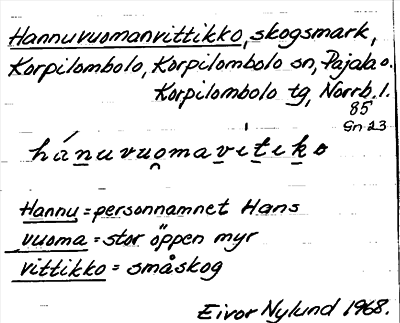 Hannuvuomanvittikko, skogsmark,
Korpilombolo, Korpilombolo sn, Pajala o.
Korpilombolo tg, Norrb. l.
85
Gn 23
hánuvuomavitiko
Hannu = personnamnet Hans
vuoma = stor öppen myr
vittikko = småskog
Eivor Nylund 1968.